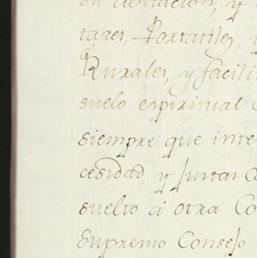 tares, Portatiles, y
Rurales, y facili
suelo espiritual
siempre que inte
cesidad, y Juntas
suelto a otra Co
Supremo Consejo